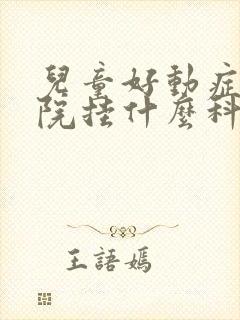 兒童好動症
院挂什麼科
王語嫣